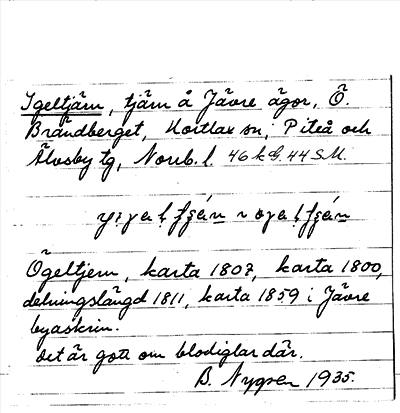 Igeltjärn, tjärn å Jävre ägor, Ö.
Brändberget, Hortlax sn, Piteå och
Älvsby tg, Norrb. l. 46 k G. 44 S M.
Ögeltjern, karta 1807, karta 1800,
delningslängd 1811, karta 1859 i Jävre
byaskrin.
Det är gott om blodiglar där.
B. Nygren 1935.